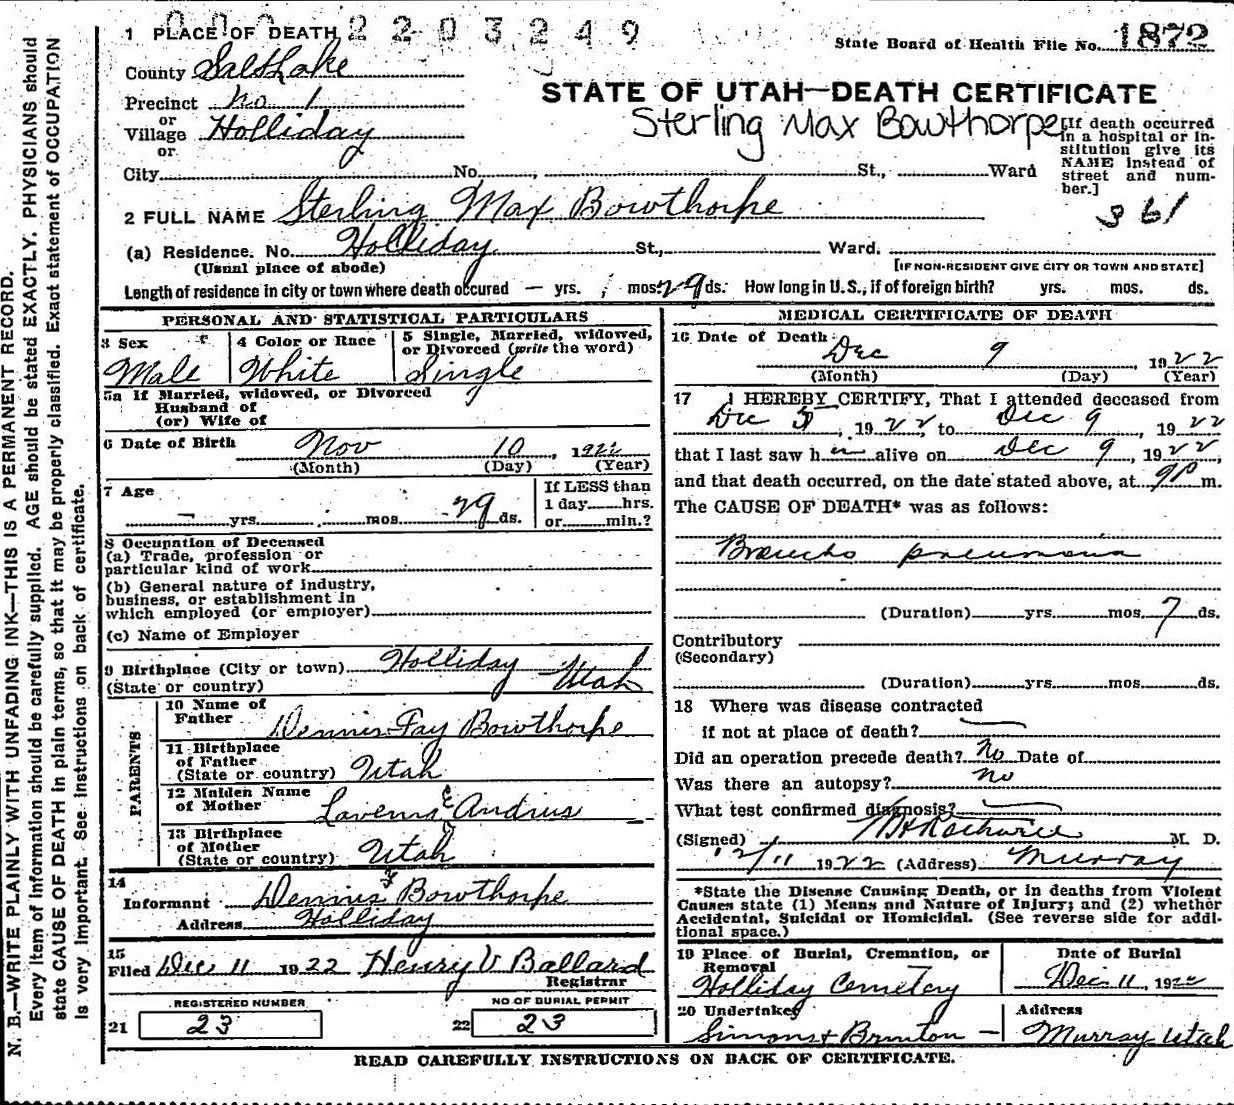 000 2203249
1 PLACE OF DEATH
State Board of Health File No. 1872
County Salt Lake
STATE OF UTAH—DEATH CERTIFICATE
Precinct No 1
or
Village Holliday
or
Sterling Max Bowthorpe
[If death occurred in a hospital or institution give its NAME instead of street and number.]
City No. , St., Ward
361
2 FULL NAME Sterling Max Bowthorpe
(a) Residence. No. Holliday St., Ward.
(Usual place of abode)
[IF NON-RESIDENT GIVE CITY OR TOWN AND STATE]
Length of residence in city or town where death occured — yrs. / mos. 29 ds. How long in U. S., if of foreign birth? yrs. mos. ds.
PERSONAL AND STATISTICAL PARTICULARS
3 Sex
Male
4 Color or Race
White
5 Single, Married, widowed, or Divorced (write the word)
Single
5a If Married, widowed, or Divorced
Husband of
(or) Wife of
6 Date of Birth Nov 10, 1922
(Month) (Day) (Year)
7 Age
— yrs. mos. 29 ds.
If LESS than
1 day hrs.
or min.?
8 Occupation of Deceased
(a) Trade, profession or
particular kind of work
(b) General nature of industry,
business, or establishment in
which employed (or employer)
(c) Name of Employer
9 Birthplace (City or town) Holliday
(State or country) Utah
PARENTS
10 Name of
Father Dennis Fay Bowthorpe
11 Birthplace
of Father
(State or country) Utah
12 Maiden Name
of Mother Andrus
13 Birthplace
of Mother
(State or country) Utah
14
Informant Dennis F Bowthorpe
Address Holliday
15
Filed Dec 11 1922 Henry V Ballard
Registrar
REGISTERED NUMBER
21 23
NO OF BURIAL PERMIT
22 23
MEDICAL CERTIFICATE OF DEATH
16 Date of Death
Dec 9 1922
(Month) (Day) (Year)
17 I HEREBY CERTIFY, That I attended deceased from
Dec 5, 1922, to Dec 9, 1922
that I last saw h alive on Dec 9, 1922,
and that death occurred, on the date stated above, at 9P m.
The CAUSE OF DEATH* was as follows:
Broncho pneumona
(Duration) yrs. mos. 7 ds.
Contributory
(Secondary)
(Duration) yrs. mos. ds.
18 Where was disease contracted
if not at place of death? —
Did an operation precede death? No Date of
Was there an autopsy? no
What test confirmed diagnosis? —
(Signed) M. D.
12/11 1922 (Address) Murray
*State the Disease Causing Death, or in deaths from Violent
Causes state (1) Means and Nature of Injury; and (2) whether
Accidental, Suicidal or Homicidal. (See reverse side for additional space.)
19 Place of Burial, Cremation, or
Removal
Holliday Cemetery
Date of Burial
Dec 11, 1922
20 Undertaker
Simons & Brinton —
Address
Murray Utah
READ CAREFULLY INSTRUCTIONS ON BACK OF CERTIFICATE.
N. B.—WRITE PLAINLY WITH UNFADING INK—THIS IS A PERMANENT RECORD.
Every item of information should be carefully supplied. AGE should be stated EXACTLY. PHYSICIANS should
state CAUSE OF DEATH in plain terms, so that it may be properly classified. Exact statement of OCCUPATION
is very important. See instructions on back of certificate.